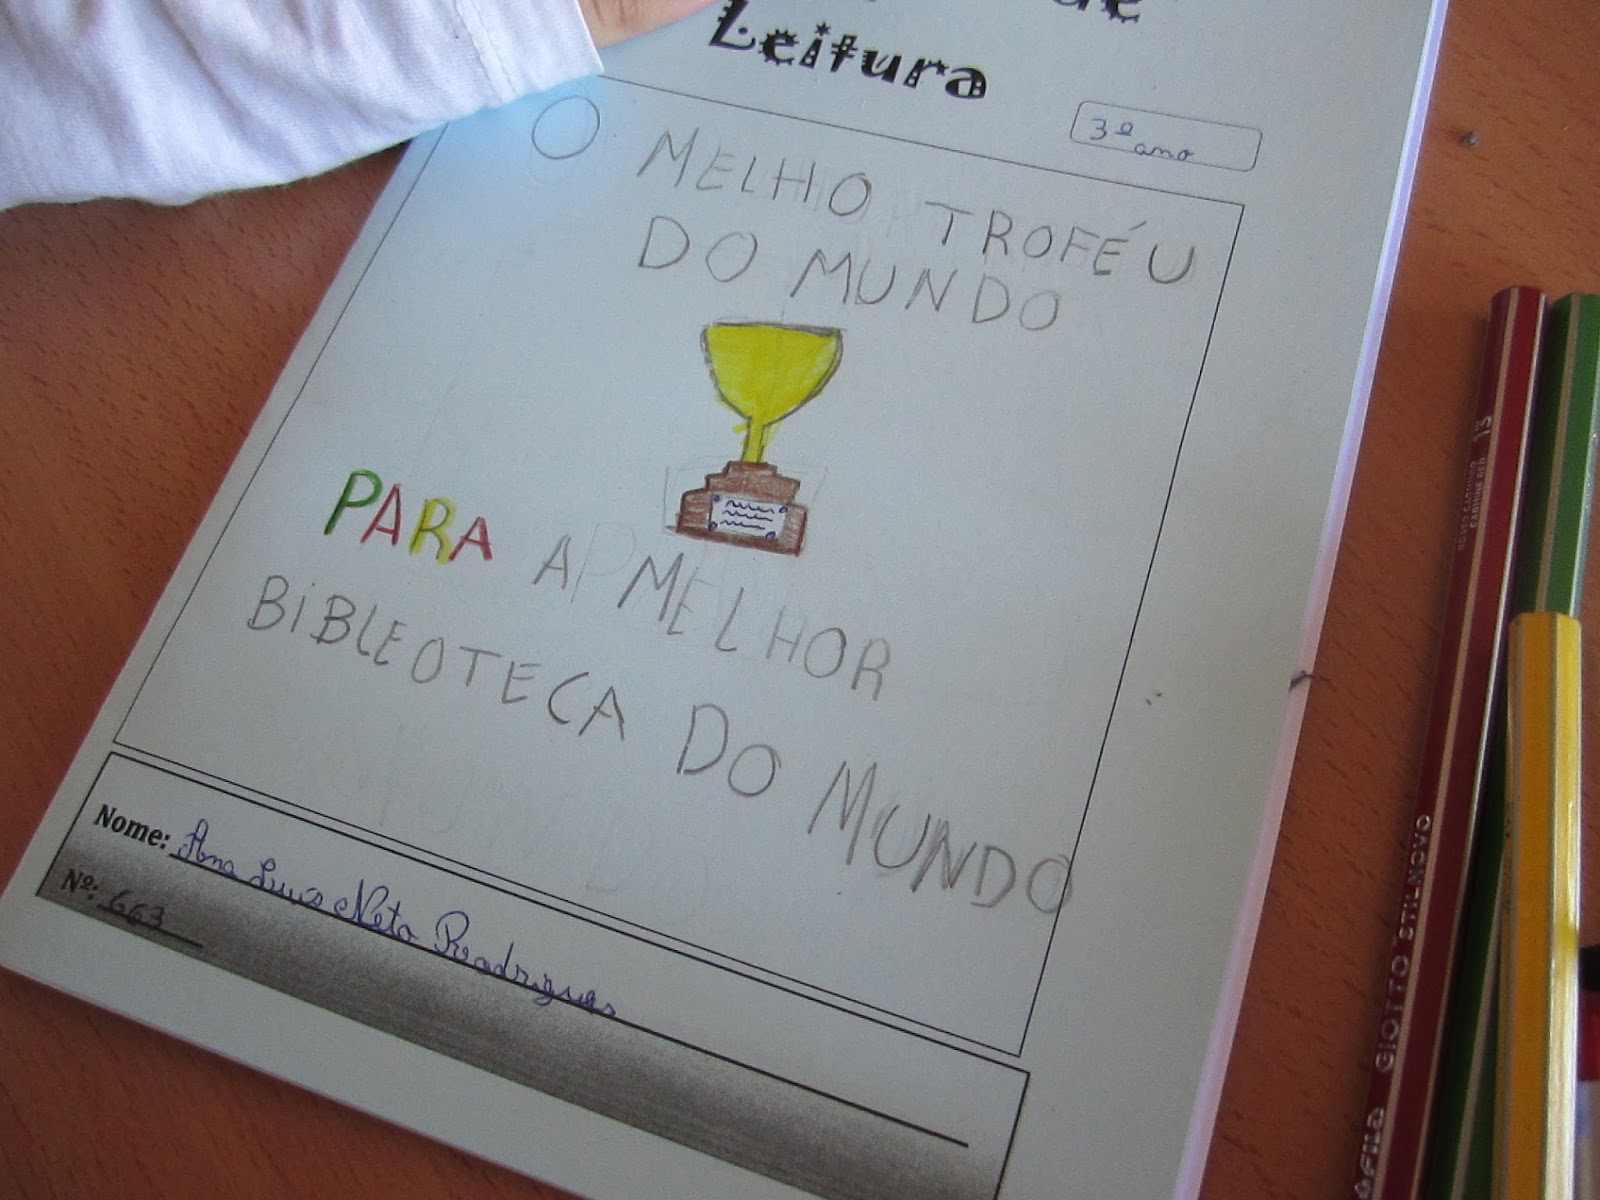 de
Leitura
3º ano
O MELHO TROFÉU
DO MUNDO
PARA A MELHOR
BIBLEOTECA DO MUNDO
Nome: Ana Luís Neto Rodrigues
Nº: 663
GIOTTO STILNOVO 13